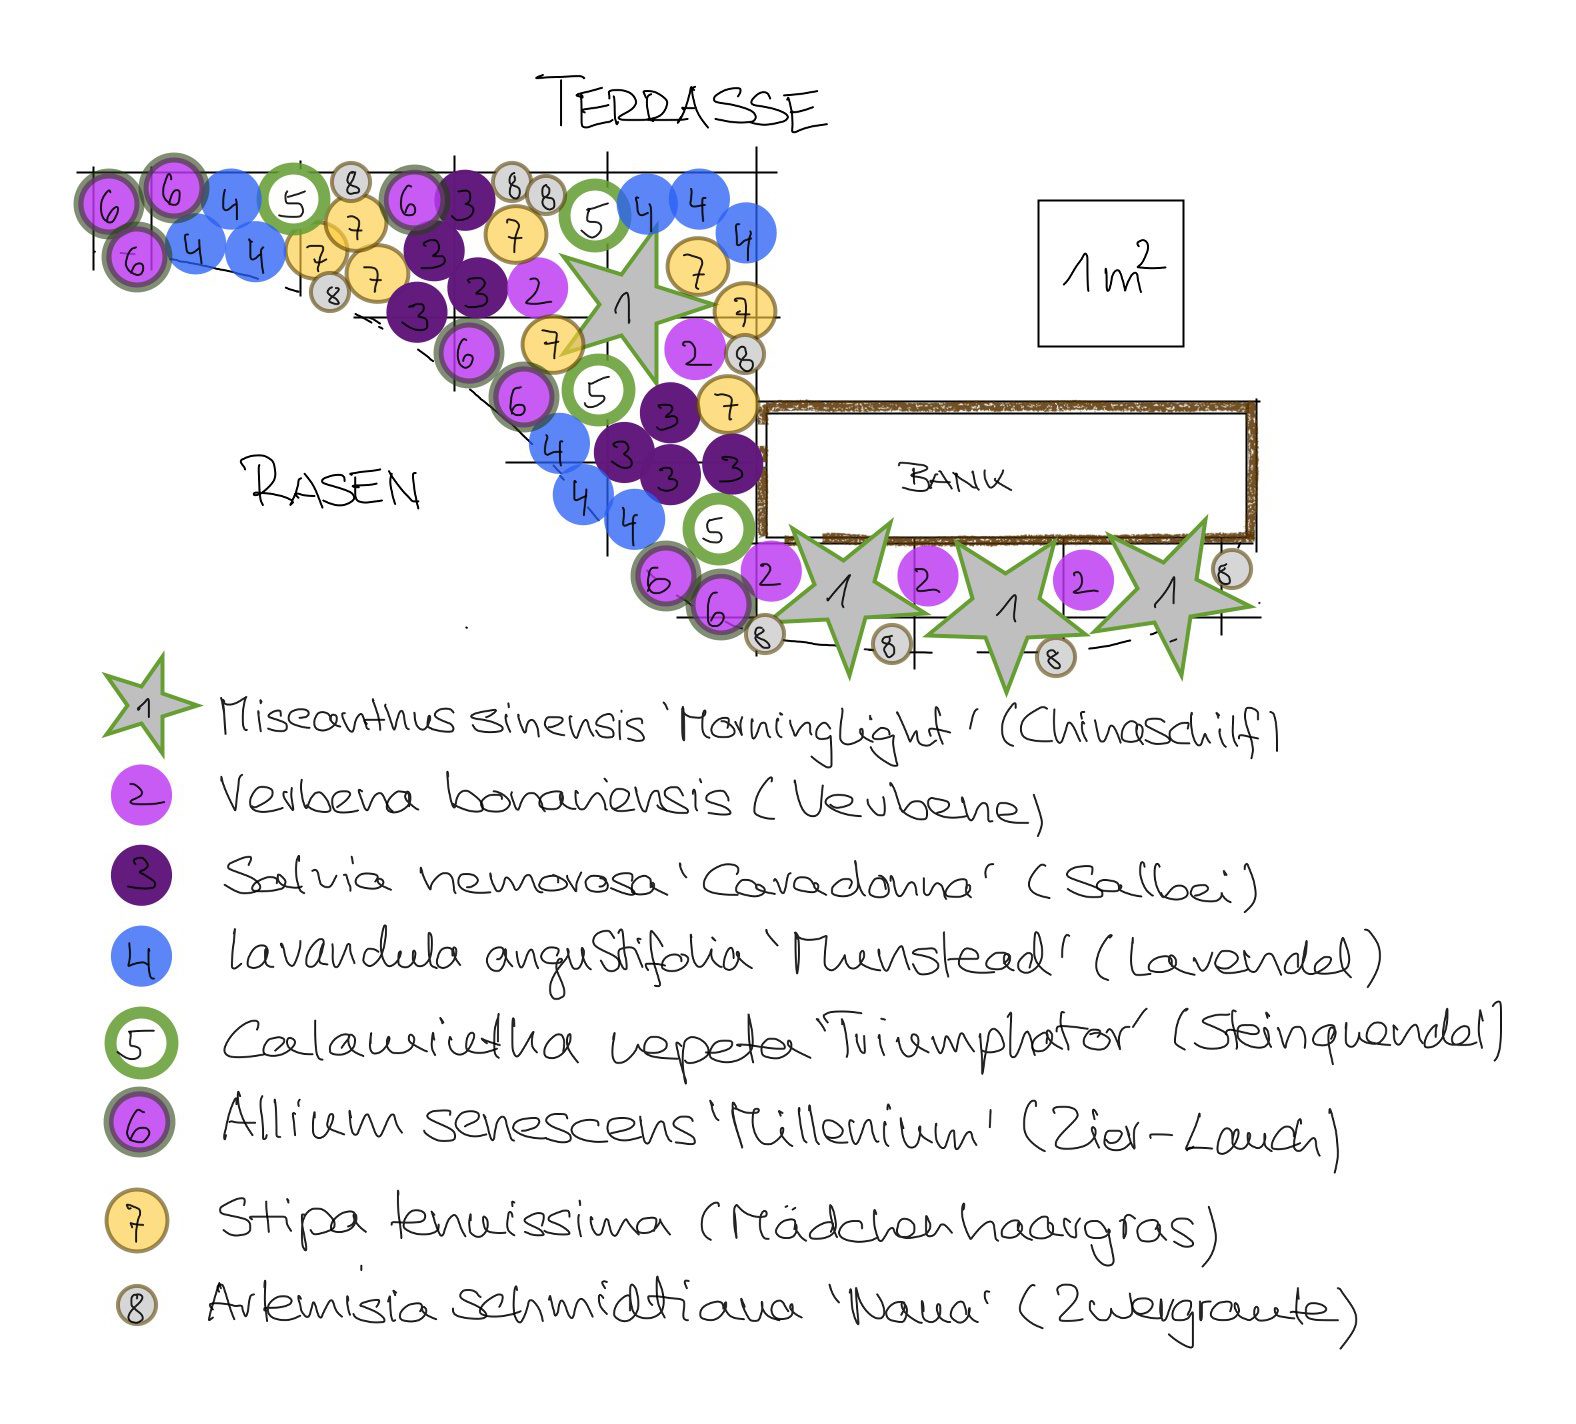 TERRASSE
6 6 4 5 8 6 3 8 8 5 4 4
6 4 4 7 7 7 3 7 7 4
8 3 3 2 1 7
6 7 2 8
6 5 3 7
4 3 3 3
4 4 5
6 6 2 1 2 1 2 1 8
8 8 8
1m²
BANK
RASEN
1 Miscanthus sinensis 'Morninglight' (Chinaschilf)
2 Verbena bonariensis (Verbene)
3 Salvia nemorosa 'Caradonna' (Salbei)
4 Lavandula angustifolia 'Munstead' (Lavendel)
5 Calamintha nepeta 'Triumphator' (Steinquendel)
6 Allium senescens 'Millenium' (Zier-Lauch)
7 Stipa tenuissima (Mädchenhaargras)
8 Artemisia schmidtiana 'Nana' (Zwergraute)